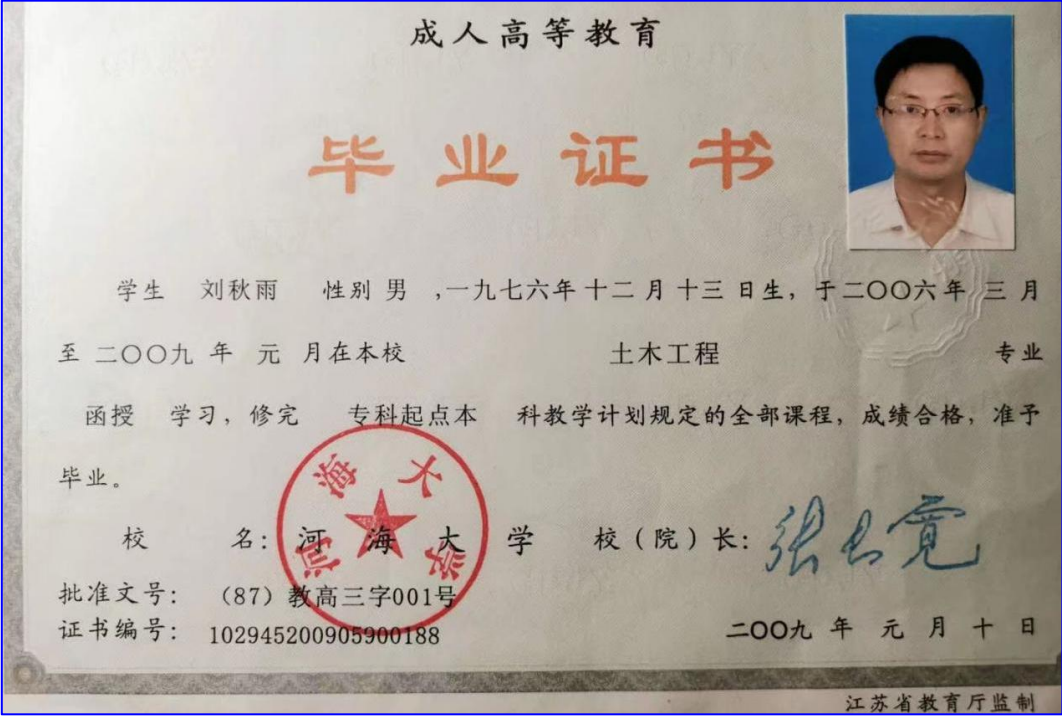 成人高等教育
毕业证书
学生 刘秋雨 性别 男 ,一九七六年十二月十三日生，于二〇〇六年 三月
至二〇〇九 年 元 月在本校 土木工程 专业
函授 学习，修完 专科起点本 科教学计划规定的全部课程，成绩合格，准予
毕业。
校 名：河海大学 校（院）长：张长宽
河海大学
批准文号： （87）教高三字001号
证书编号： 102945200905900188
二〇〇九 年 元 月 十 日
江苏省教育厅监制